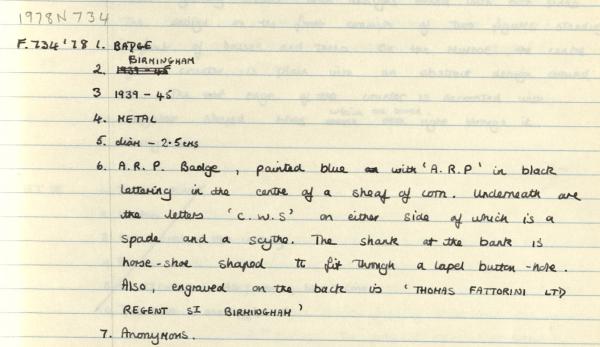 1978N734
F.734'78 1. BADGE
BIRMINGHAM
2. 1939-45
3 1939-45
4. METAL
5. diam - 2.5cms
6. A.R.P. Badge, painted blue with 'A.R.P' in black
lettering in the centre of a sheaf of corn. Underneath are
the letters 'C.W.S' on either side of which is a
spade and a scythe. The shank at the back is
horse-shoe shaped to fit through a lapel button-hole.
Also, engraved on the back is 'THOMAS FATTORINI LTD
REGENT ST BIRMINGHAM'
7. Anonymous.